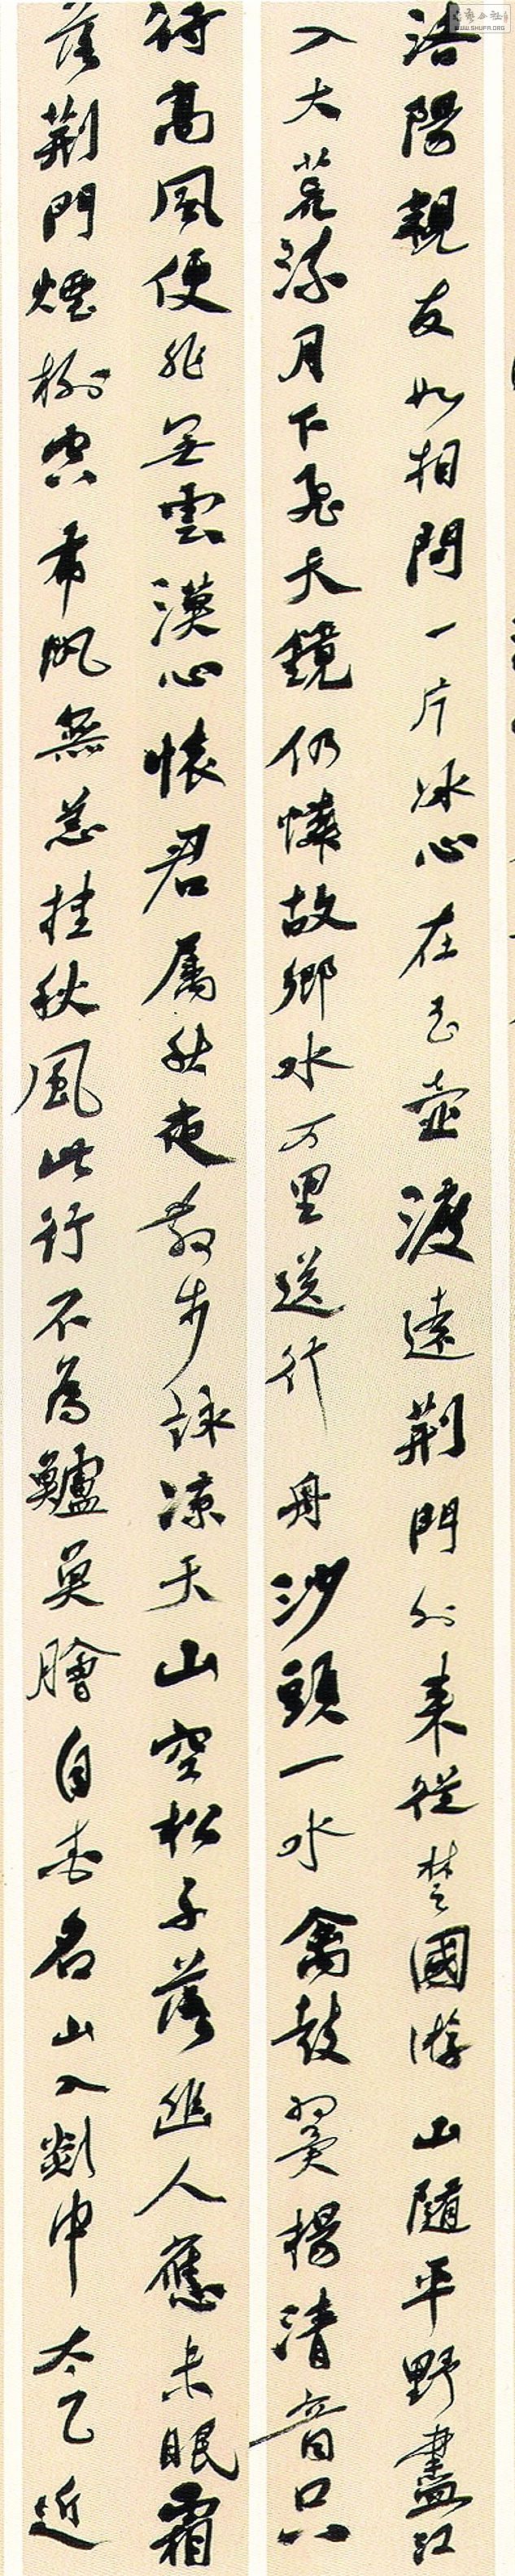 洛陽親友如相問一片冰心在玉壺渡遠荊門外來從楚國游山隨平野盡江
入大荒流月下飛天鏡仍憐故鄉水万里送行舟沙頭一水禽鼓翼揚清音只
待高風便非無雲漢心懷君屬秋夜散步詠涼天山空松子落幽人應未眠霜
落荊門煙樹空布帆無恙挂秋風此行不為鱸魚膾自愛名山入剡中太乙近
WWW.SHUFA.ORG